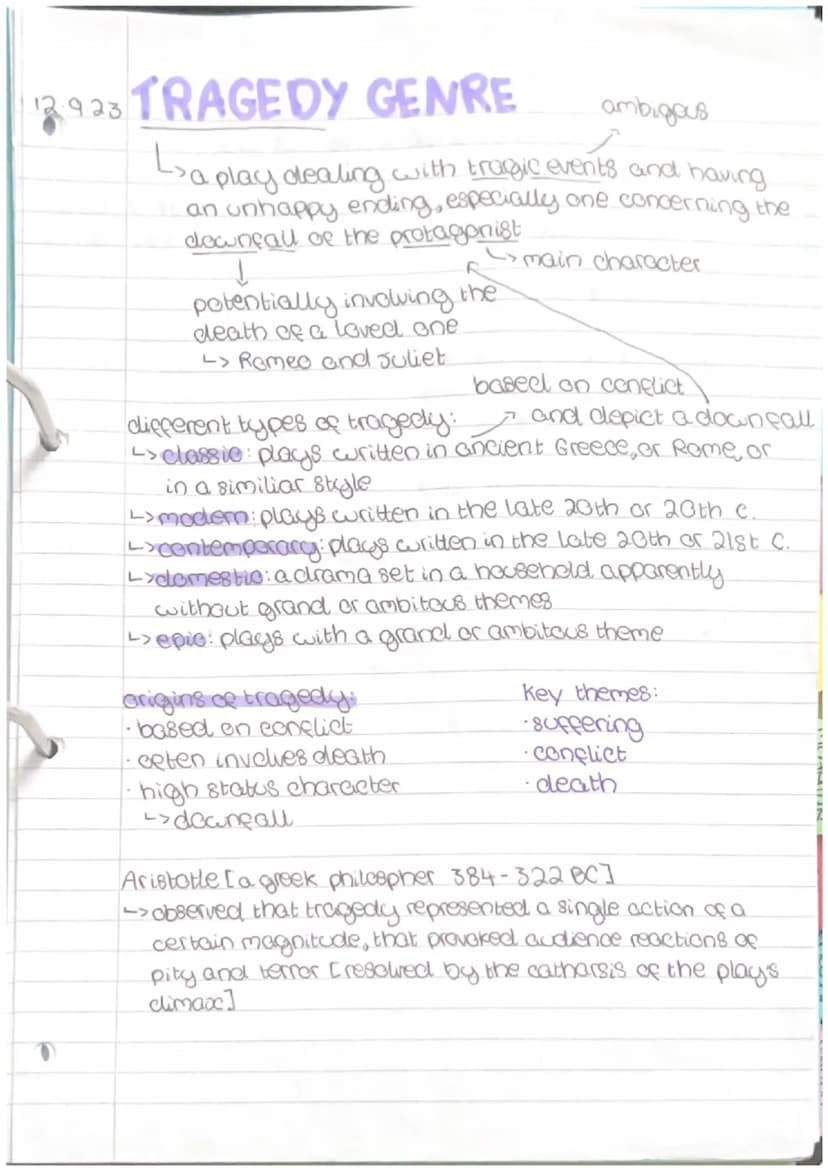 12.9.23 TRAGEDY GENRE
ambigous
↳ a play dealing with tragic events and having
an unhappy ending, especially one concerning the
downfall of the protagonist
↳ main character
potentially involving the
death of a loved one
↳ Romeo and Juliet
based on conflict
and depict a downfall
different types of tragedy:
↳ classic: plays written in ancient Greece, or Rome, or
in a similiar style
↳ modern: plays written in the late 20th or 20th c.
↳ contemporary: plays written in the late 20th or 21st c.
↳ domestic: a drama set in a household apparently
without grand or ambitous themes
↳ epic: plays with a grand or ambitous theme
origins of tragedy:
· based on conflict
· often involves death
· high status character
↳ downfall
key themes:
· suffering
· conflict
· death
Aristotle [a greek philosopher 384-322 BC]
↳ observed that tragedy represented a single action of a
certain magnitude, that provoked audience reactions of
pity and terror [resolved by the catharsis of the plays
climax]